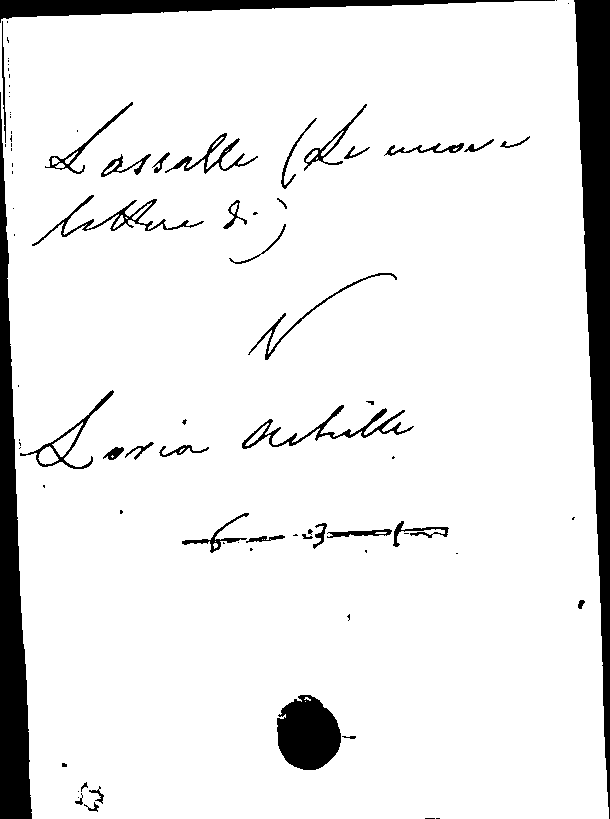 Lassalle (Le nuove
lettere di)
V
Loria Achille